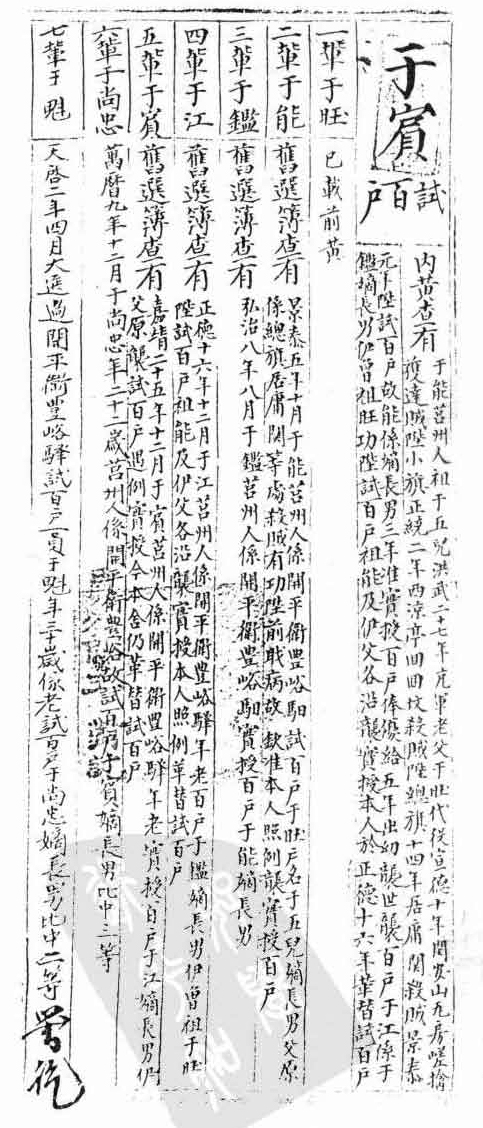 于賓
試百戶
內黃查有
于能莒州人祖于五兒洪武二十七年充軍老父于旺代役宣德十年閔安山九房嵯擒
獲達賊陞小旗正統二年西涼亭回回坟殺賊陞總旗十四年居庸關殺賊景泰
元年陞試百戶故能係嫡長男三年准實授百戶俸優給五年出幼襲世襲百戶于江係于
鑑嫡長男伊曾祖旺功陞試百戶祖能及伊父各沿襲實授本人於正德十六年革替試百戶
一輩于旺
已載前黃
二輩于能
舊選簿查有
景泰五年十月于能莒州人係開平衛豐峪馹試百戶于旺戶名于五兒嫡長男父原
係總旗居庸關等處殺賊有功陞前職病故欽准本人照例襲實授百戶
三輩于鑑
舊選簿查有
弘治八年八月于鑑莒州人係開平衛豐峪馹實授百戶于能嫡長男
四輩于江
舊選簿查有
正德十六年十二月于江莒州人係開平衛豐峪驛年老百戶于鑑嫡長男伊曾祖于旺
陞試百戶祖能及伊父各沿襲實授本人照例革替試百戶
五輩于賓
舊選簿查有
嘉靖二十五年十二月于賓莒州人係開平衛豐峪驛年老實授百戶于江嫡長男伊
父原襲試百戶遇例實授今本舍仍革替試百戶
六輩于尚忠
萬曆九年十二月于尚忠年二十二歲莒州人係開平衛豐峪故試百戶于賓嫡長男比中三等
七輩于魁
天啓二年四月大選過開平衛豐峪驛試百戶一員于魁年三十歲係老試百戶于尚忠嫡長男比中二等